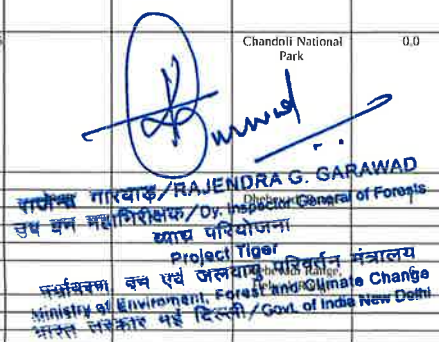 Chandoli National
Park
0.0
राजेन्द्र गारवाड/RAJENDRA G. GARAWAD
उप वन महानिरीक्षक/Dy. Inspector General of Forests
व्याघ्र परियोजना
Project Tiger
पर्यावरण, वन एवं जलवायु परिवर्तन मंत्रालय
Range,
Ministry of Enviroment, Forest and Climate Change
भारत सरकार नई दिल्ली/Govt. of India New Delhi